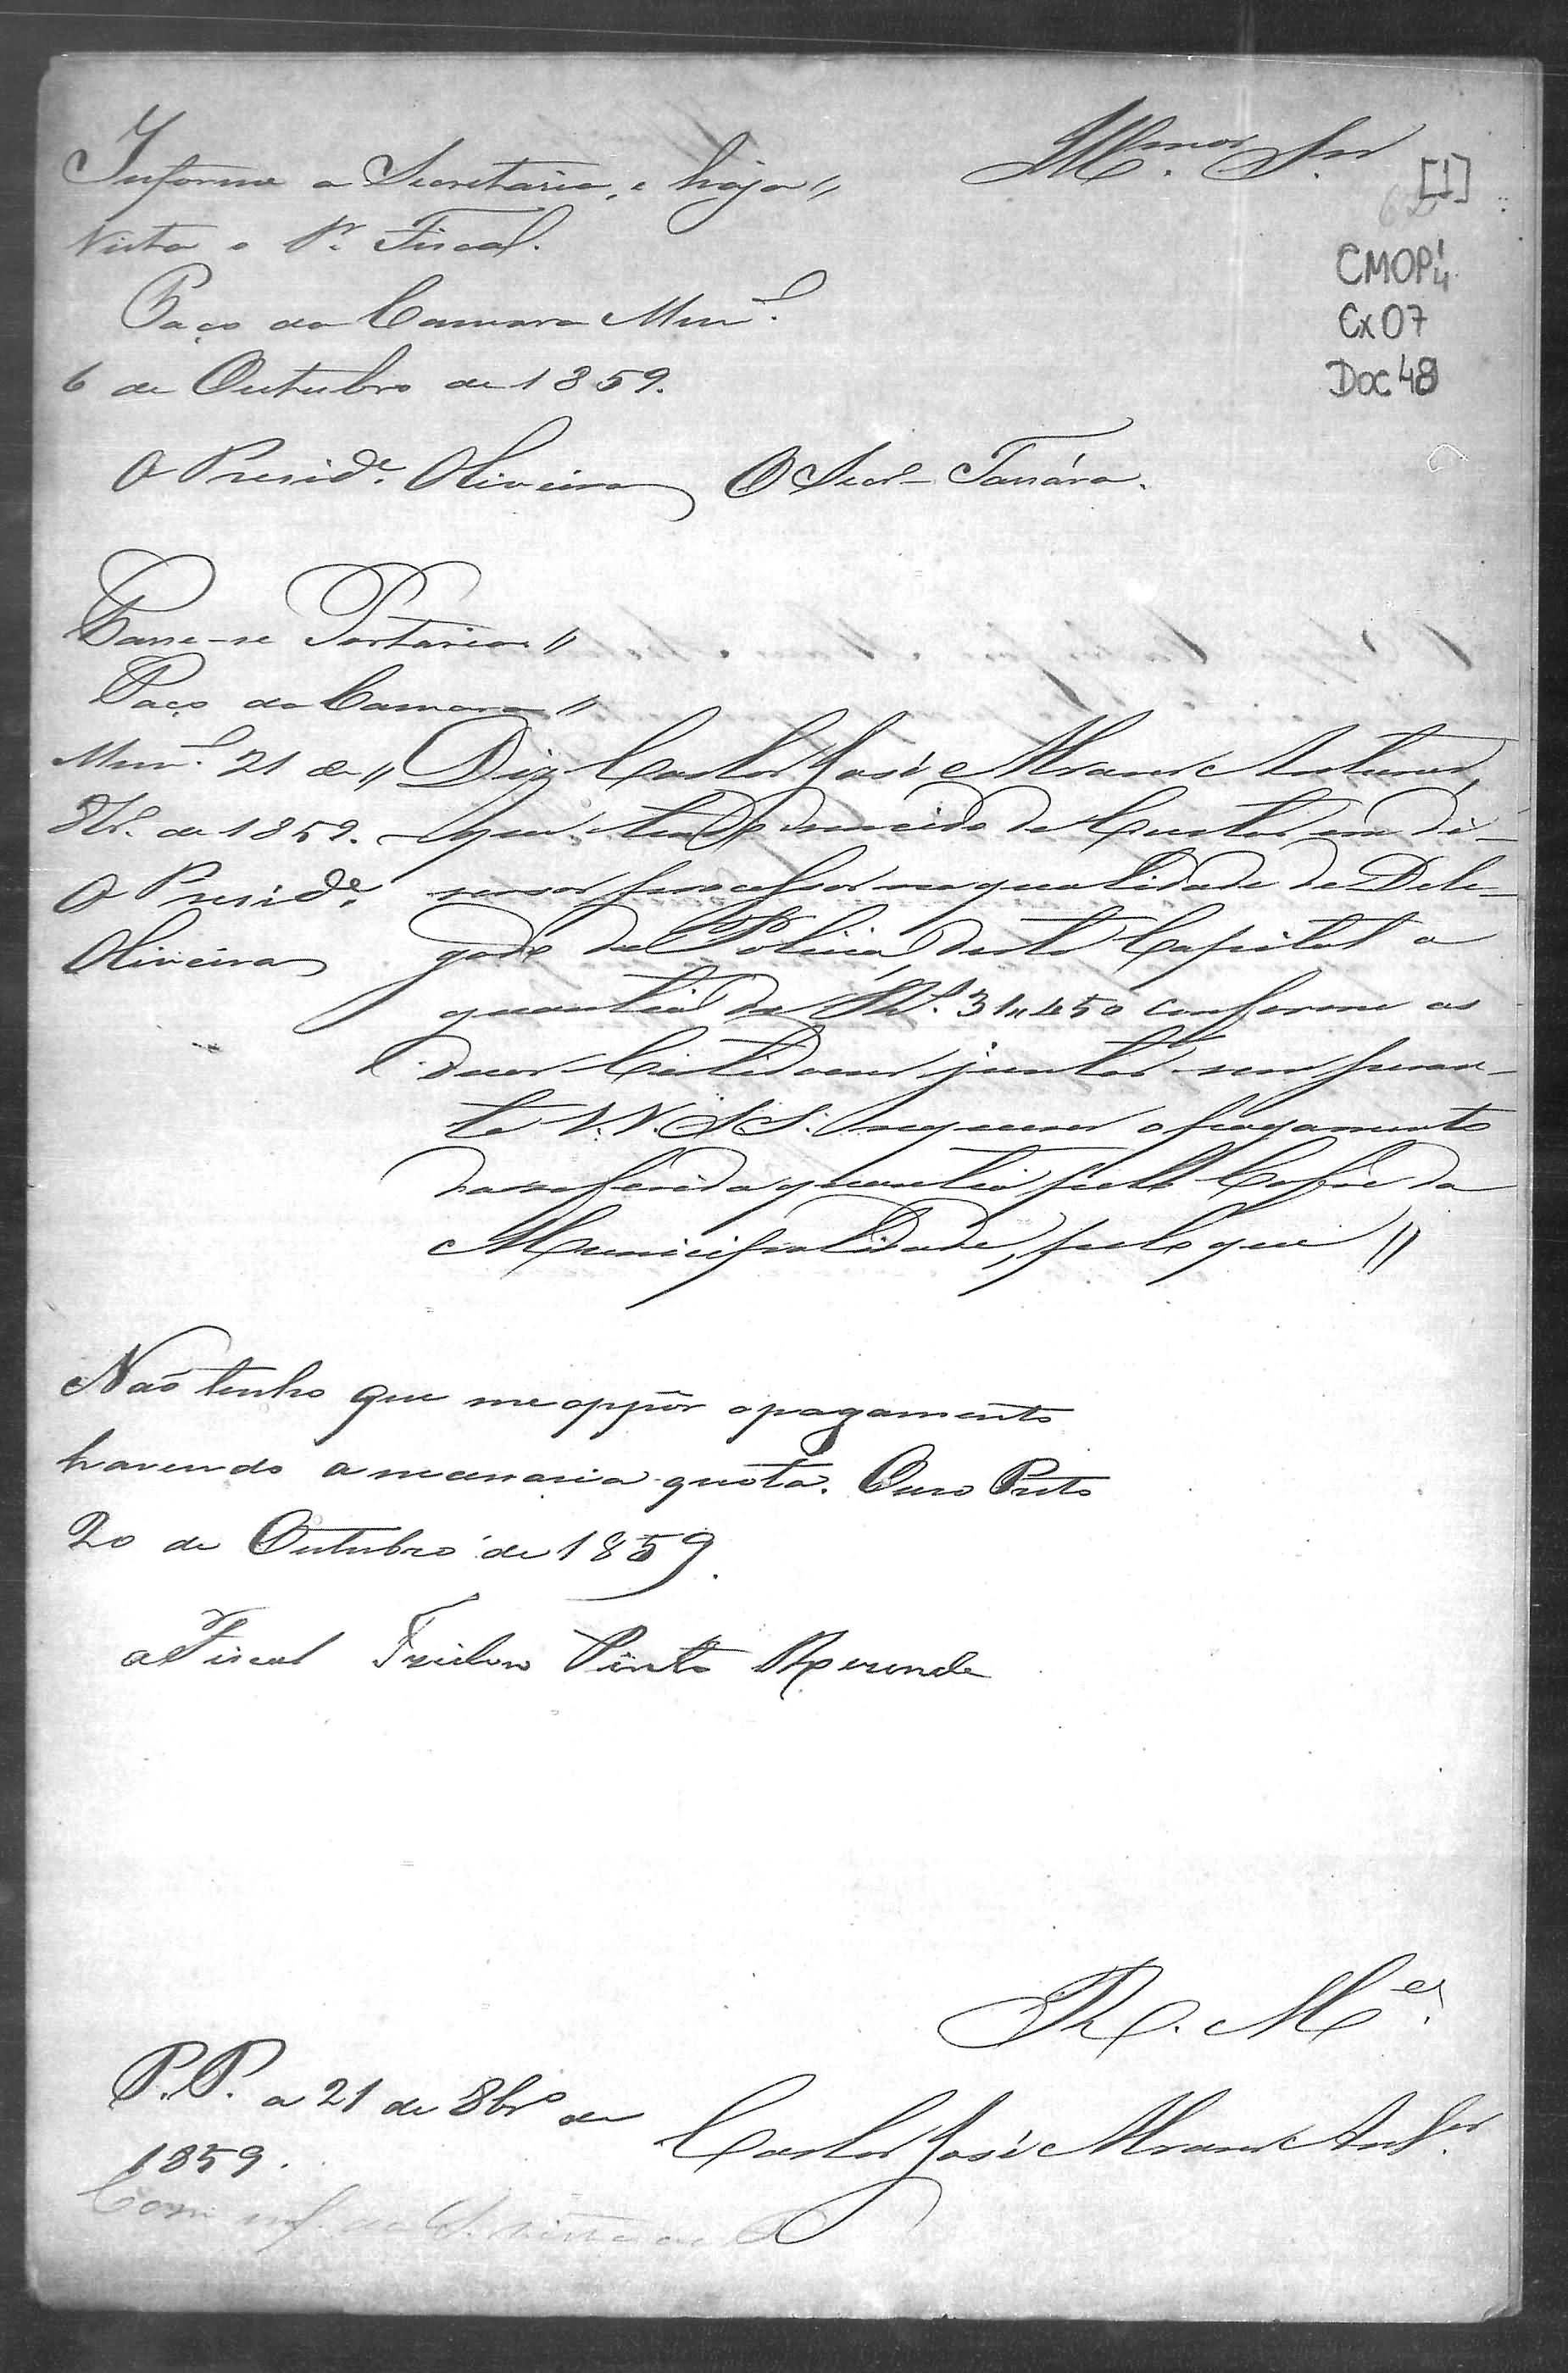 Informe a Secretaria, e haja
Vista o Sr. Fiscal.
Paço da Camara Mun.al
6 de Outubro de 1859.
O Presid.e Oliveira O Secr.
Ill.mos Snr.
[1]
CMOP
Cx 07
Doc 48
Passe-se Portaria
Paço da Camara
Mun.al 21 de
8br.o de 1859.
O Presid.e
Oliveira
Diz Carlos José Alvares Antunes,
que tendo vencido de Custas em di-
versos processos na qualidade de Dele-
gado da Policia desta Capital a
quantia de Rs. 31,,450 conforme as
duas Certidoens juntas vem peran-
te V.V.S.S. requerer o pagamento
da referida quantia pelo Cofre da
Municipalidade, pelo que
Não tenho que me oppôr o pagamento
havendo a necessaria quota. Ouro Preto
20 de Outubro de 1859.
o Fiscal Pinto Rezende
R. M.ce
P.P. a 21 de 8br.o de
1859.
Carlos José Alvares Ant.es